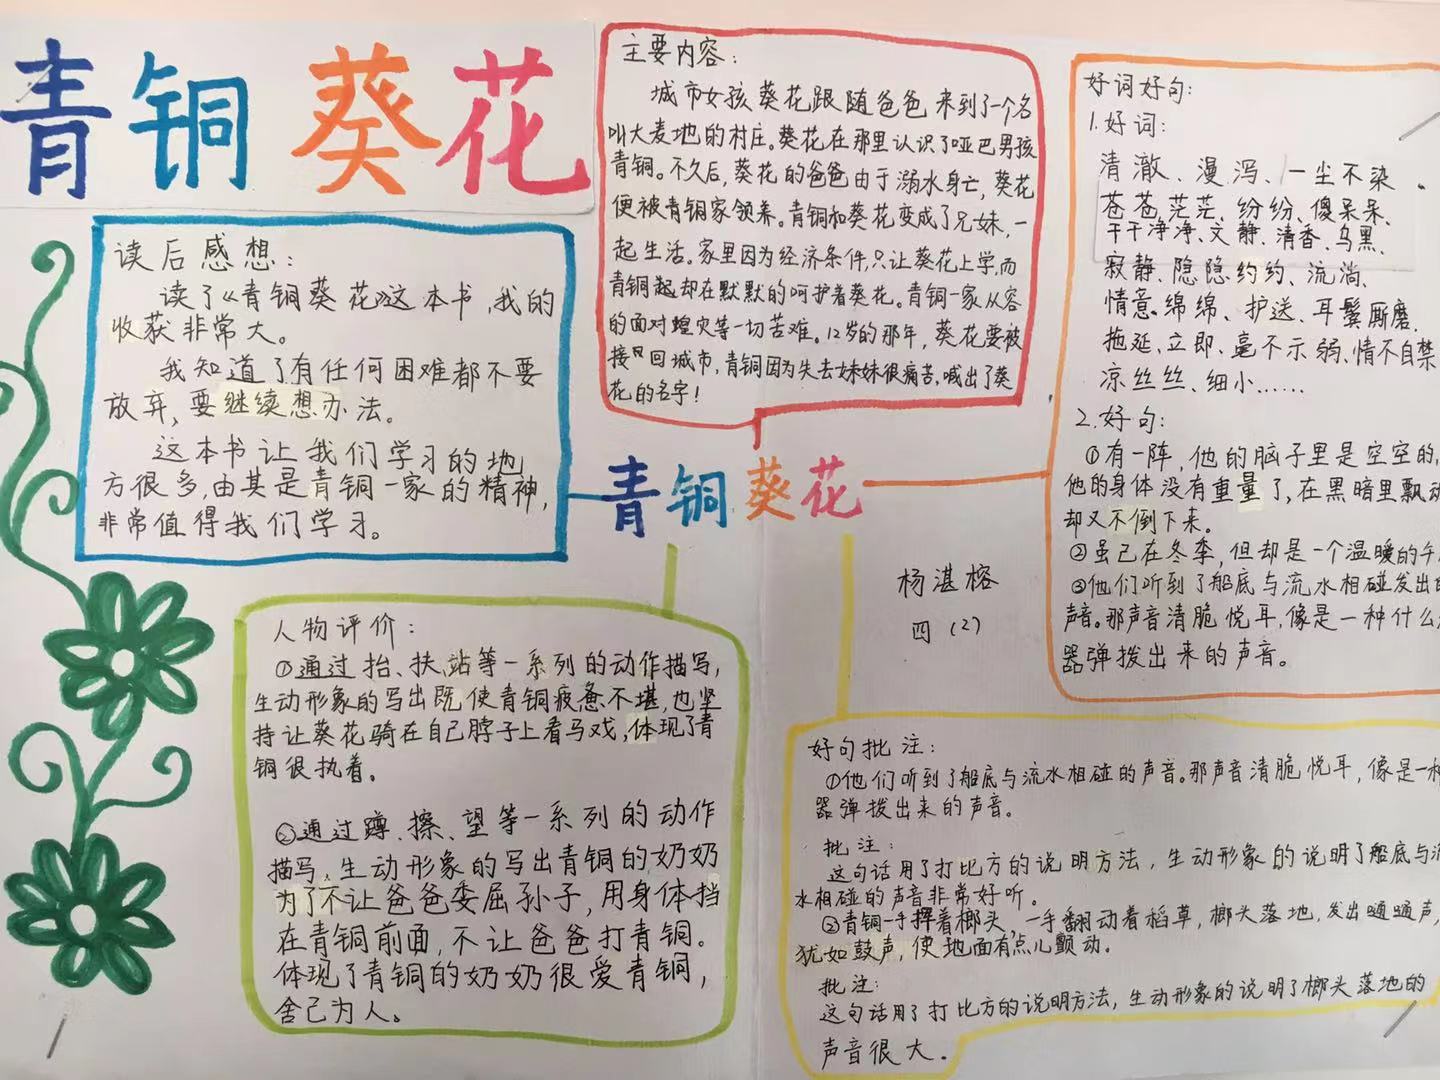 青铜葵花
读后感想：
读了《青铜葵花》这本书，我的
收获非常大。
我知道了有任何困难都不要
放弃，要继续想办法。
这本书让我们学习的地
方很多，由其是青铜一家的精神，
非常值得我们学习。
主要内容：
城市女孩葵花跟随爸爸来到了一个名
叫大麦地的村庄。葵花在那里认识了哑巴男孩
青铜。不久后，葵花的爸爸由于溺水身亡，葵花
便被青铜家领养。青铜和葵花变成了兄妹，一
起生活。家里因为经济条件，只让葵花上学，而
青铜起却在默默的呵护着葵花。青铜一家从容
的面对蝗灾等一切苦难。12岁的那年，葵花要被
接回城市，青铜因为失去妹妹很痛苦，喊出了葵
花的名字！
好词好句：
1.好词：
清澈、漫泻、一尘不染
苍苍茫茫、纷纷、傻呆呆、
干干净净、文静、清香、乌黑、
寂静、隐隐约约、流淌、
情意绵绵、护送、耳鬓厮磨、
拖延、立即、毫不示弱、情不自禁
凉丝丝、细小……
2.好句：
①有一阵，他的脑子里是空空的，
他的身体没有重量了，在黑暗里飘动
却又不倒下来。
②虽已在冬季，但却是一个温暖的午
③他们听到了船底与流水相碰发出的
声音。那声音清脆悦耳，像是一种什么
器弹拨出来的声音。
青铜葵花
杨湛榕
四（2）
人物评价：
①通过抬、扶、站等一系列的动作描写，
生动形象的写出既使青铜疲惫不堪，也坚
持让葵花骑在自己脖子上看马戏，体现了青
铜很执着。
②通过蹲、擦、望等一系列的动作
描写，生动形象的写出青铜的奶奶
为了不让爸爸委屈孙子，用身体挡
在青铜前面，不让爸爸打青铜。
体现了青铜的奶奶很爱青铜，
舍己为人。
好句批注：
①他们听到了船底与流水相碰的声音。那声音清脆悦耳，像是一种
器弹拨出来的声音。
批注：
这句话用了打比方的说明方法，生动形象的说明了船底与流
水相碰的声音非常好听。
②青铜一手挥着榔头，一手翻动着稻草，榔头落地，发出嗵嗵声，
犹如鼓声，使地面有点儿颤动。
批注：
这句话用了打比方的说明方法，生动形象的说明了榔头落地的
声音很大。